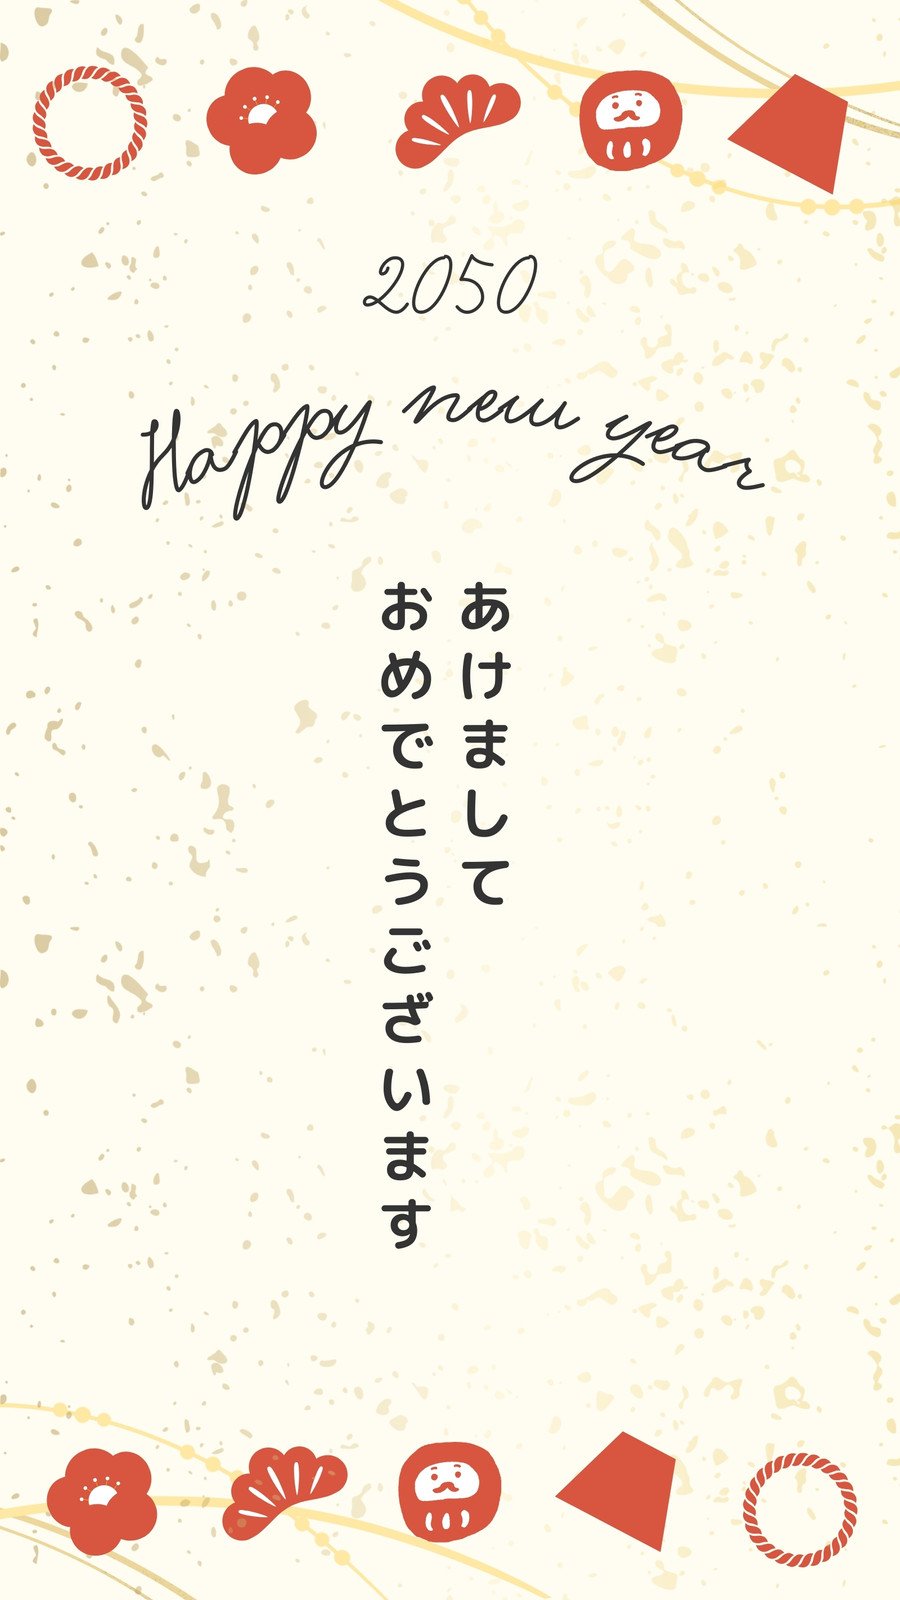 2050
Happy new year
あけまして
おめでとうございます